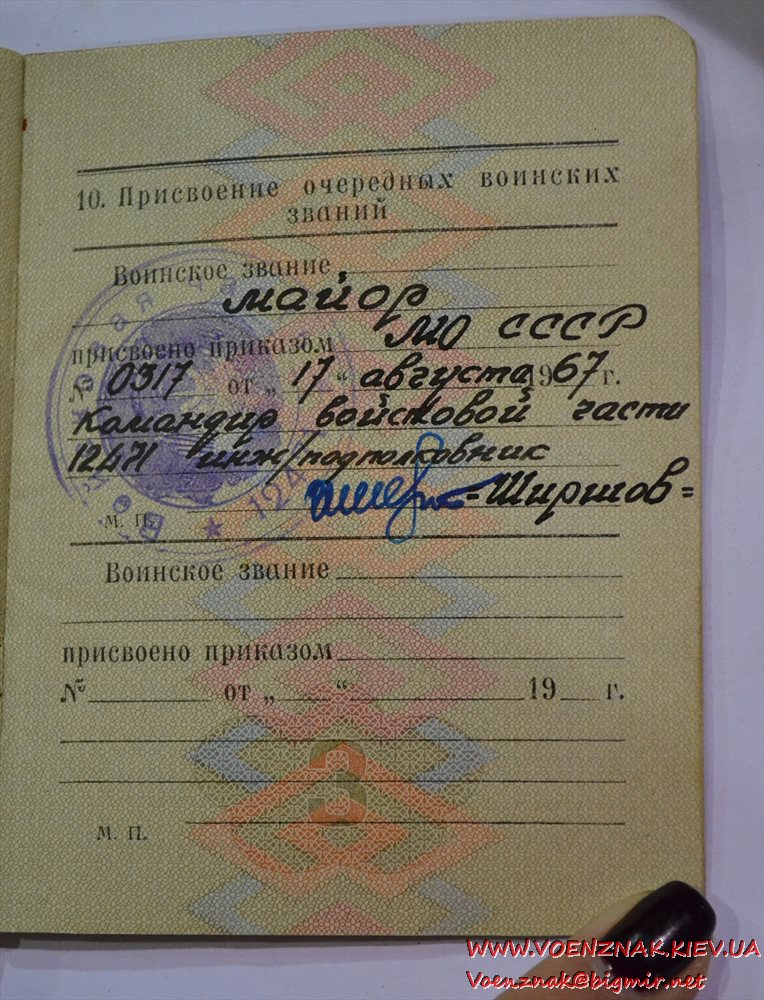 10. Присвоение очередных воинских
званий
Воинское звание
майор
присвоено приказом МО СССР
№ 0317 от „ 17 “ августа 1967 г.
Командир войсковой части
12471 инж/подполковник
=Ширшов=
М. П.
Воинское звание
присвоено приказом
№ от „ “ 19 г.
М. П.
3
WWW.VOENZNAK.KIEV.UA
Voenznak@bigmir.net